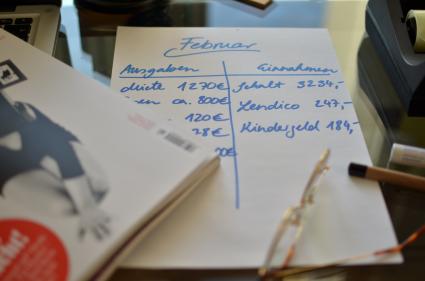 Februar
Ausgaben
Einnahmen
Miete 1270€
Gehalt 3234,-
ca. 800€
Lendico 247,-
120€
Kindergeld 184,-
28€
00€